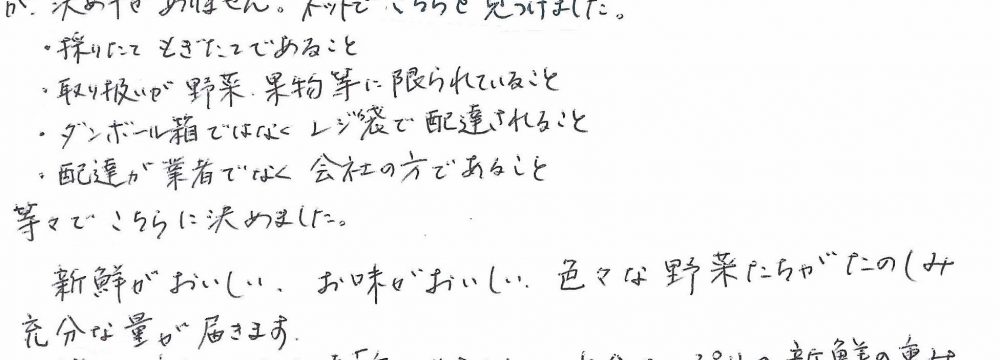 が、決め手がありません。ネットでこちらを見つけました。
・採りたて もぎたてであること
・取り扱いが野菜、果物等に限られていること
・ダンボール箱ではなくレジ袋で配達されること
・配達が業者でなく会社の方であること
等々でこちらに決めました。
新鮮がおいしい、お味がおいしい、色々な野菜たちがたのしみ
充分な量が届きます。
新鮮の